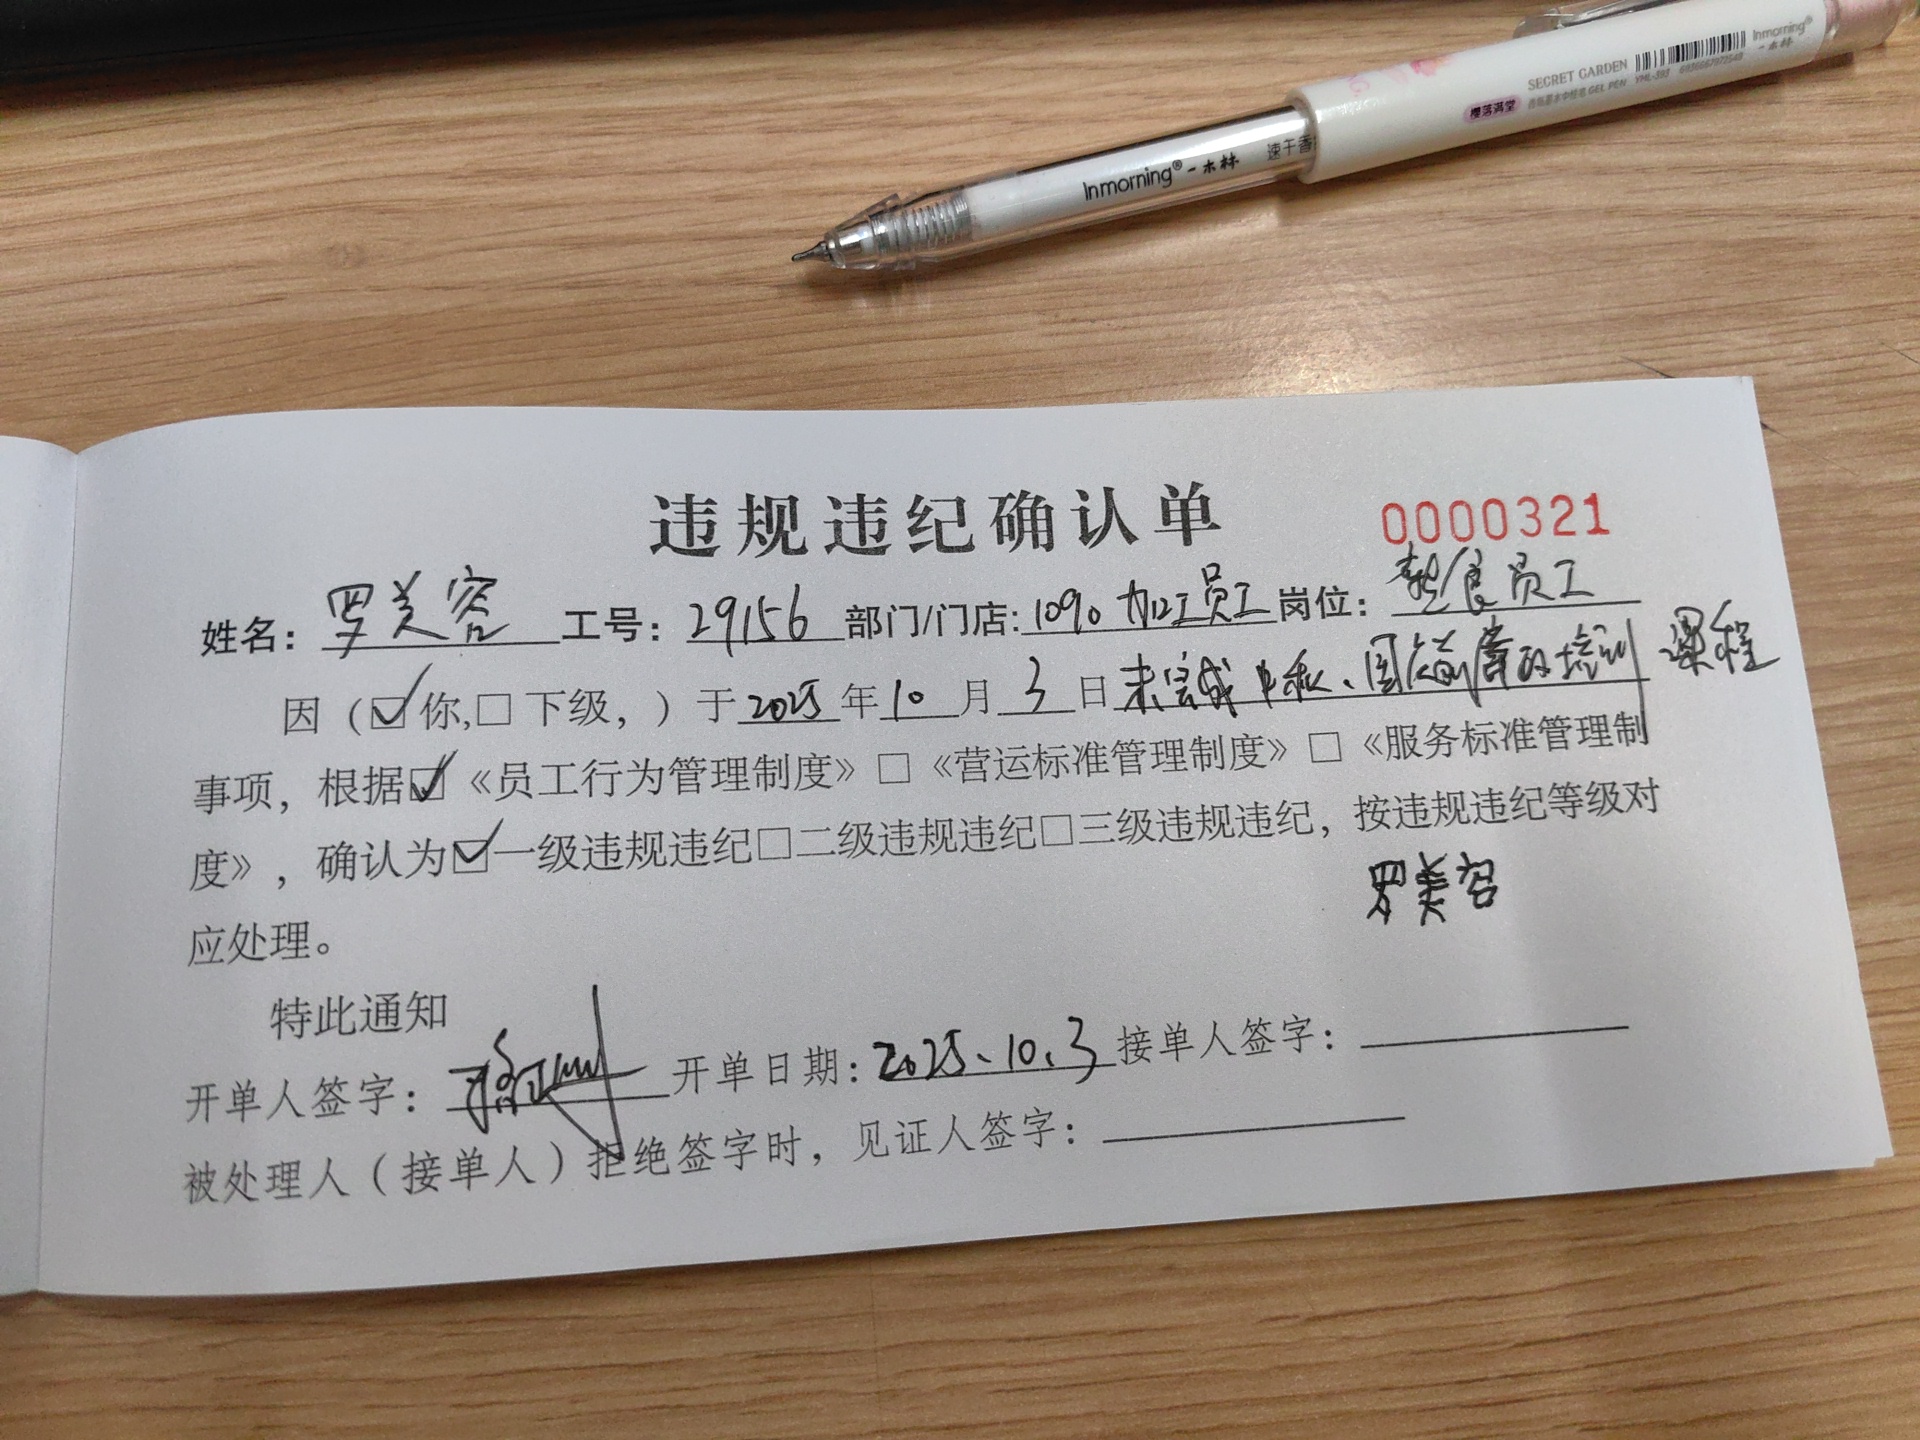 Inmorning®
一木林
SECRET GARDEN YML-393 6936667972549
樱落满堂 GEL PEN
Inmorning® 一木林 速干香
违规违纪确认单 0000321
姓名：罗美容 工号：29156 部门/门店：1090 加工员工 岗位：熟食员工
因（☑你,□下级，）于2025年10月3日未完成中秋、国庆 培训课程
事项，根据☑《员工行为管理制度》□《营运标准管理制度》□《服务标准管理制
度》，确认为☑一级违规违纪□二级违规违纪□三级违规违纪，按违规违纪等级对
应处理。
罗美容
特此通知
开单人签字： 开单日期：2025、10、3 接单人签字：
被处理人（接单人）拒绝签字时，见证人签字：